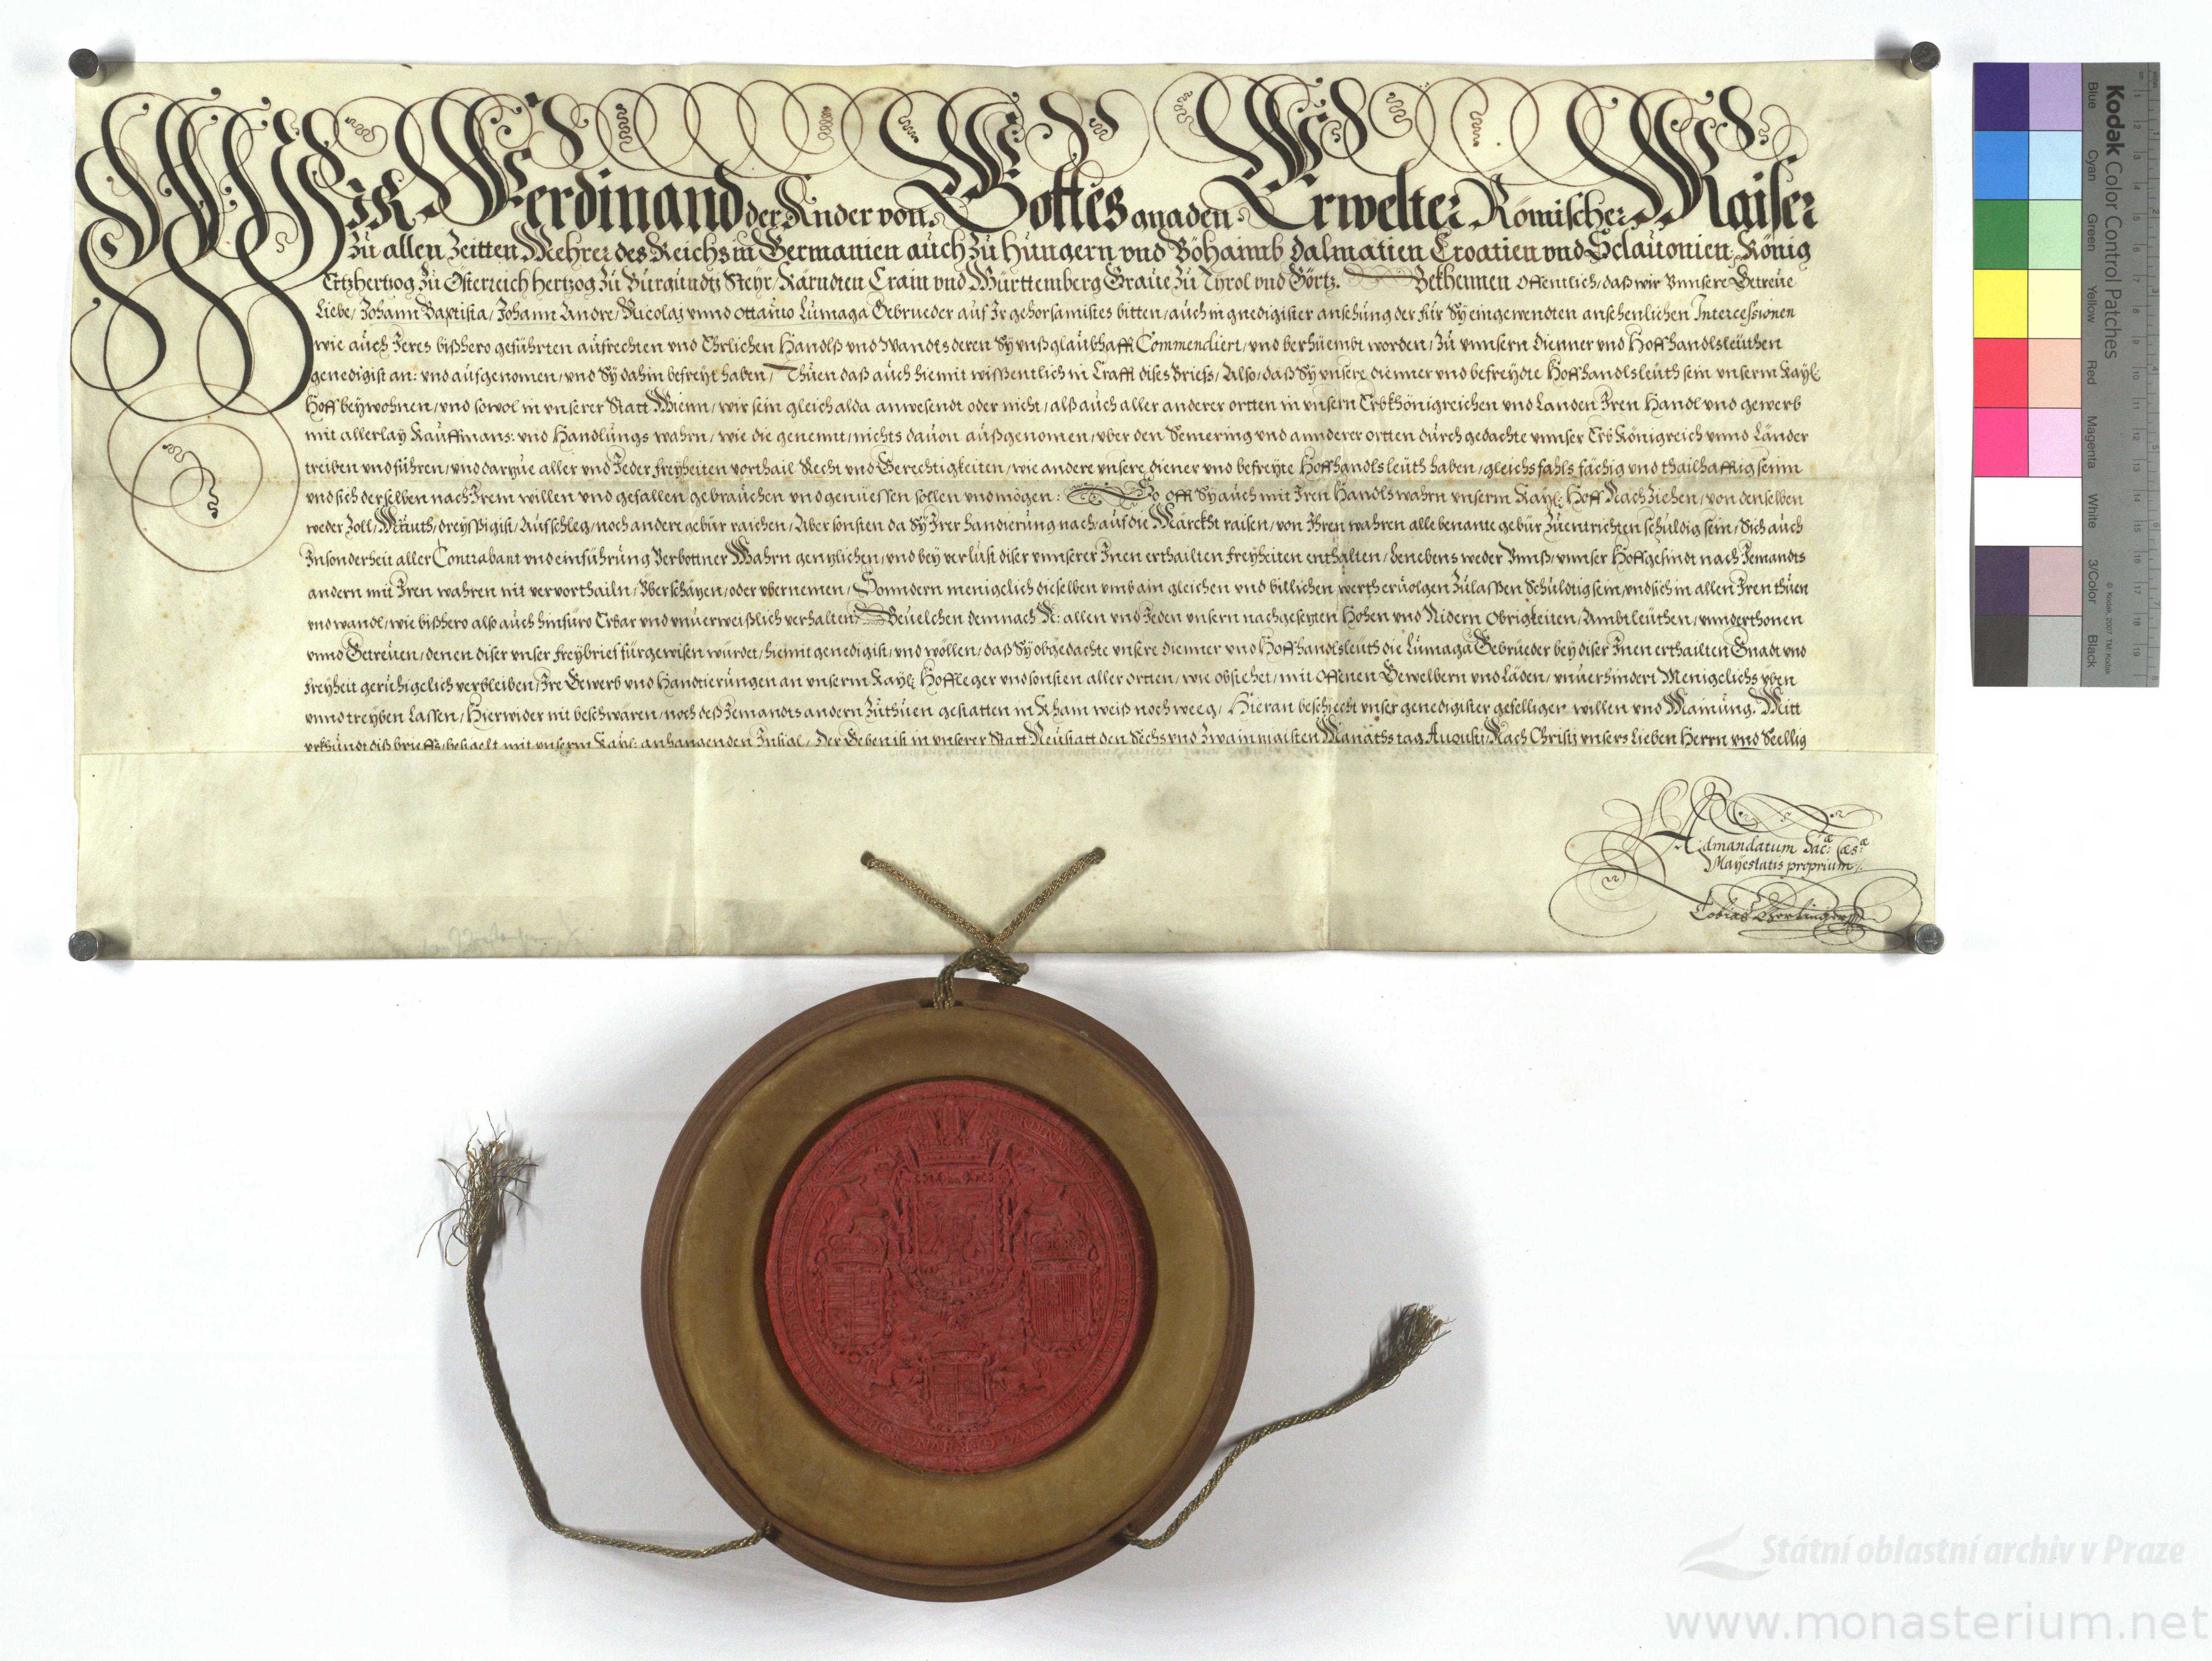 Wir Ferdinand der Ander von Gottes gnaden Erwelter Römischer Kaiser
Zu allen Zeitten Mehrer des Reichs in Germanien auch Zu Hungern vnd Böhaimb Dalmatien Croatien vnd Sclauonien König
Ertzhertzog Zu Osterreich Hertzog Zu Burgundt Steyr, Kärndten Crain vnd Württemberg Graue Zu Tyrol vnd Görtz. Bekhennen offentlich, daß wir Vnnsere Getreüe
Liebe, Johann Baptista, Johann Andre, Nicolaj vnnd Ottauio Lumaga Gebrueder auf Ir gehorsamistes bitten, auch in gnedigister ansehung der für Sy eingewendten ansehenlichen Intercessionen
wie auch Ires bißhero geführten aufrechten vnd Ehrlichen Handls vnd Wandls deren Sy vnß glaubhafft Commendiert, vnd berhüembt worden, Zu vnnsern Dienner vnd Hoffhandlsleüthen
genedigist an: vnd aufgenomen, vnd Sy dahin befreyt haben, Thuen daß auch hiemit wissentlich in Crafft dises Briefs, Also, daß Sy vnsere dienner vnd befreydte Hoffhandlsleüth sein vnserm Kayl:
Hoff beywohnen, vnd sowol in vnserer Statt Wienn, wir sein gleich alda anwesendt oder nicht, alß auch aller anderer ortten in vnsern Erbkhönigreichen vnd Landen Iren Handl vnd gewerb
mit allerlay Kauffmans: vnd Handlungs wahrn, wie die genennt, nichts dauon außgenomen, vber den Semering vnd annderer ortten durch gedachte vnnser Erb Königreich vnnd Länder
treiben vnd führen, vnd darzue aller vnd Jeder freyheiten vorthail Recht vnd Gerechtigkeiten, wie andere vnsere diener vnd befreyte Hoffhandlsleüth haben, gleichsfahls fächig vnd thailhafftig seinn
vnd sich derselben nach Irem willen vnd gefallen gebrauchen vnd genüessen sollen vnd mögen: So offt Sy auch mit Iren Handlswahrn vnserm Kayl: Hoff Nachziehen, von denselben
weder Zoll, Mauth, dreyssigist, Aufschleg, noch andere gebür raichen, Aber sonsten da Sy Irer handierung nach, auf die Märckht raisen, von Ihren wahren alle benante gebür Zuentrichten schuldig sein, Sich auch
Insonderheit aller Contrabant vnd einführung Verbottner Wahrn genzlichen, vnd bey verlust diser vnnserer Inen erthailten freyheiten enthalten, benebens weder Vnnß, vnnser Hoffgesindt nach Jemandts
andern mit Iren wahren nit vervorthailn, Vberschäzen, oder vbernemen, Sonndern menigelich dieselben vmb ain gleichen vnd billichen werth eruolgen Zulassen Schuldig sein, vnd sich in allen Iren thuen
vnd wandl, wie bißhero also auch hinfüro Erbar vnd vnuerweißlich verhalten, Beuelchen demnach N: allen vnd Jeden vnsern nachgesezten Hohen vnd Nidern Obrigkeiten, Ambtleüthen, vnnderthonen
vnnd Getreüen, denen diser vnser freybrief fürgewisen würdet, hiemit genedigist, vnd wöllen, daß Sy obgedachte vnsere dienner vnd Hoffhandlsleüth die Lumaga Gebrüeder bey diser Inen erthailten Gnadt vnd
freyheit geruhigelich verbleiben, Ire Gewerb vnd Handtierungen an vnserm Kayl: Hoffleger vnd sonsten aller ortten, wie obstehet, mit offenen Gewelbern vnd Läden, vnuerhindert Menigelichs yben
vnnd treyben lassen, Hierwider nit beschwären, noch deß Jemandts andern Zuthuen gestatten in kham weiß noch weeg, Hieran beschiecht vnser genedigister gefelliger willen vnd Mainung. Mitt
vrkhundt diß brieffs, besigelt mit vnserm Kayl: anhangenden Insigl, Der Geben ist in vnserer Statt Neustatt den Sechs vnd Zwainzigisten Monaths tag Augusti, Nach Christj vnsers lieben Herrn vnd Seellig
Ad mandatum Sac:æ Cæs:æ
Mayestatis proprium
Tobias
Kodak Color Control Patches
Blue Cyan Green Yellow Red Magenta White 3/Color Black
© Kodak, 2007 TM: Kodak
Státní oblastní archiv v Praze
www.monasterium.net